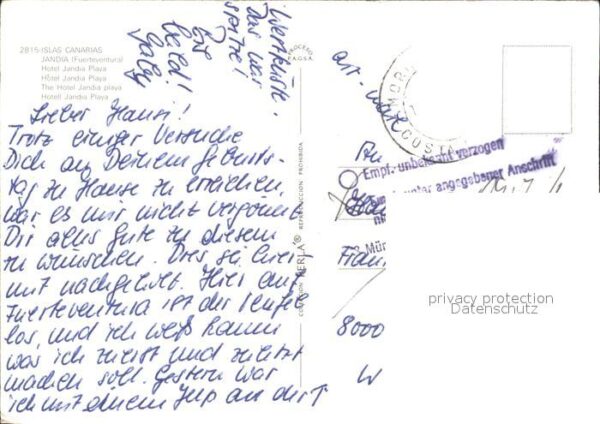 2815-ISLAS CANARIAS
JANDIA (Fuerteventura)
Hotel Jandia Playa
Hôtel Jandia Playa
The Hotel Jandia playa
Hotell Jandia Playa
Lieber Hansi!
Trotz einiger Versuche
Dich an Deinem Geburts-
tag zu Hause zu erreichen,
war es mir nicht vergönnt
Dir alles Gute zu diesem
zu wünschen. Dies sei hier-
mit nachgeholt. Hier auf
Fuerteventura ist der Teufel
los, und ich weiß kaum
was ich zuerst und zuletzt
machen soll. Gestern war
ich mit einem Jeep an der
Westküste.
Das war
spitze!
Bis
bald!
Gaby
PROCESO
F.A.G.S.A.
COLECCION PERLA® REPRODUCCION PROHIBIDA
MORR
COST
An
Empf. unbekannt verzogen
unter angegebener Anschrift
Mün
8000
privacy protection
Datenschutz